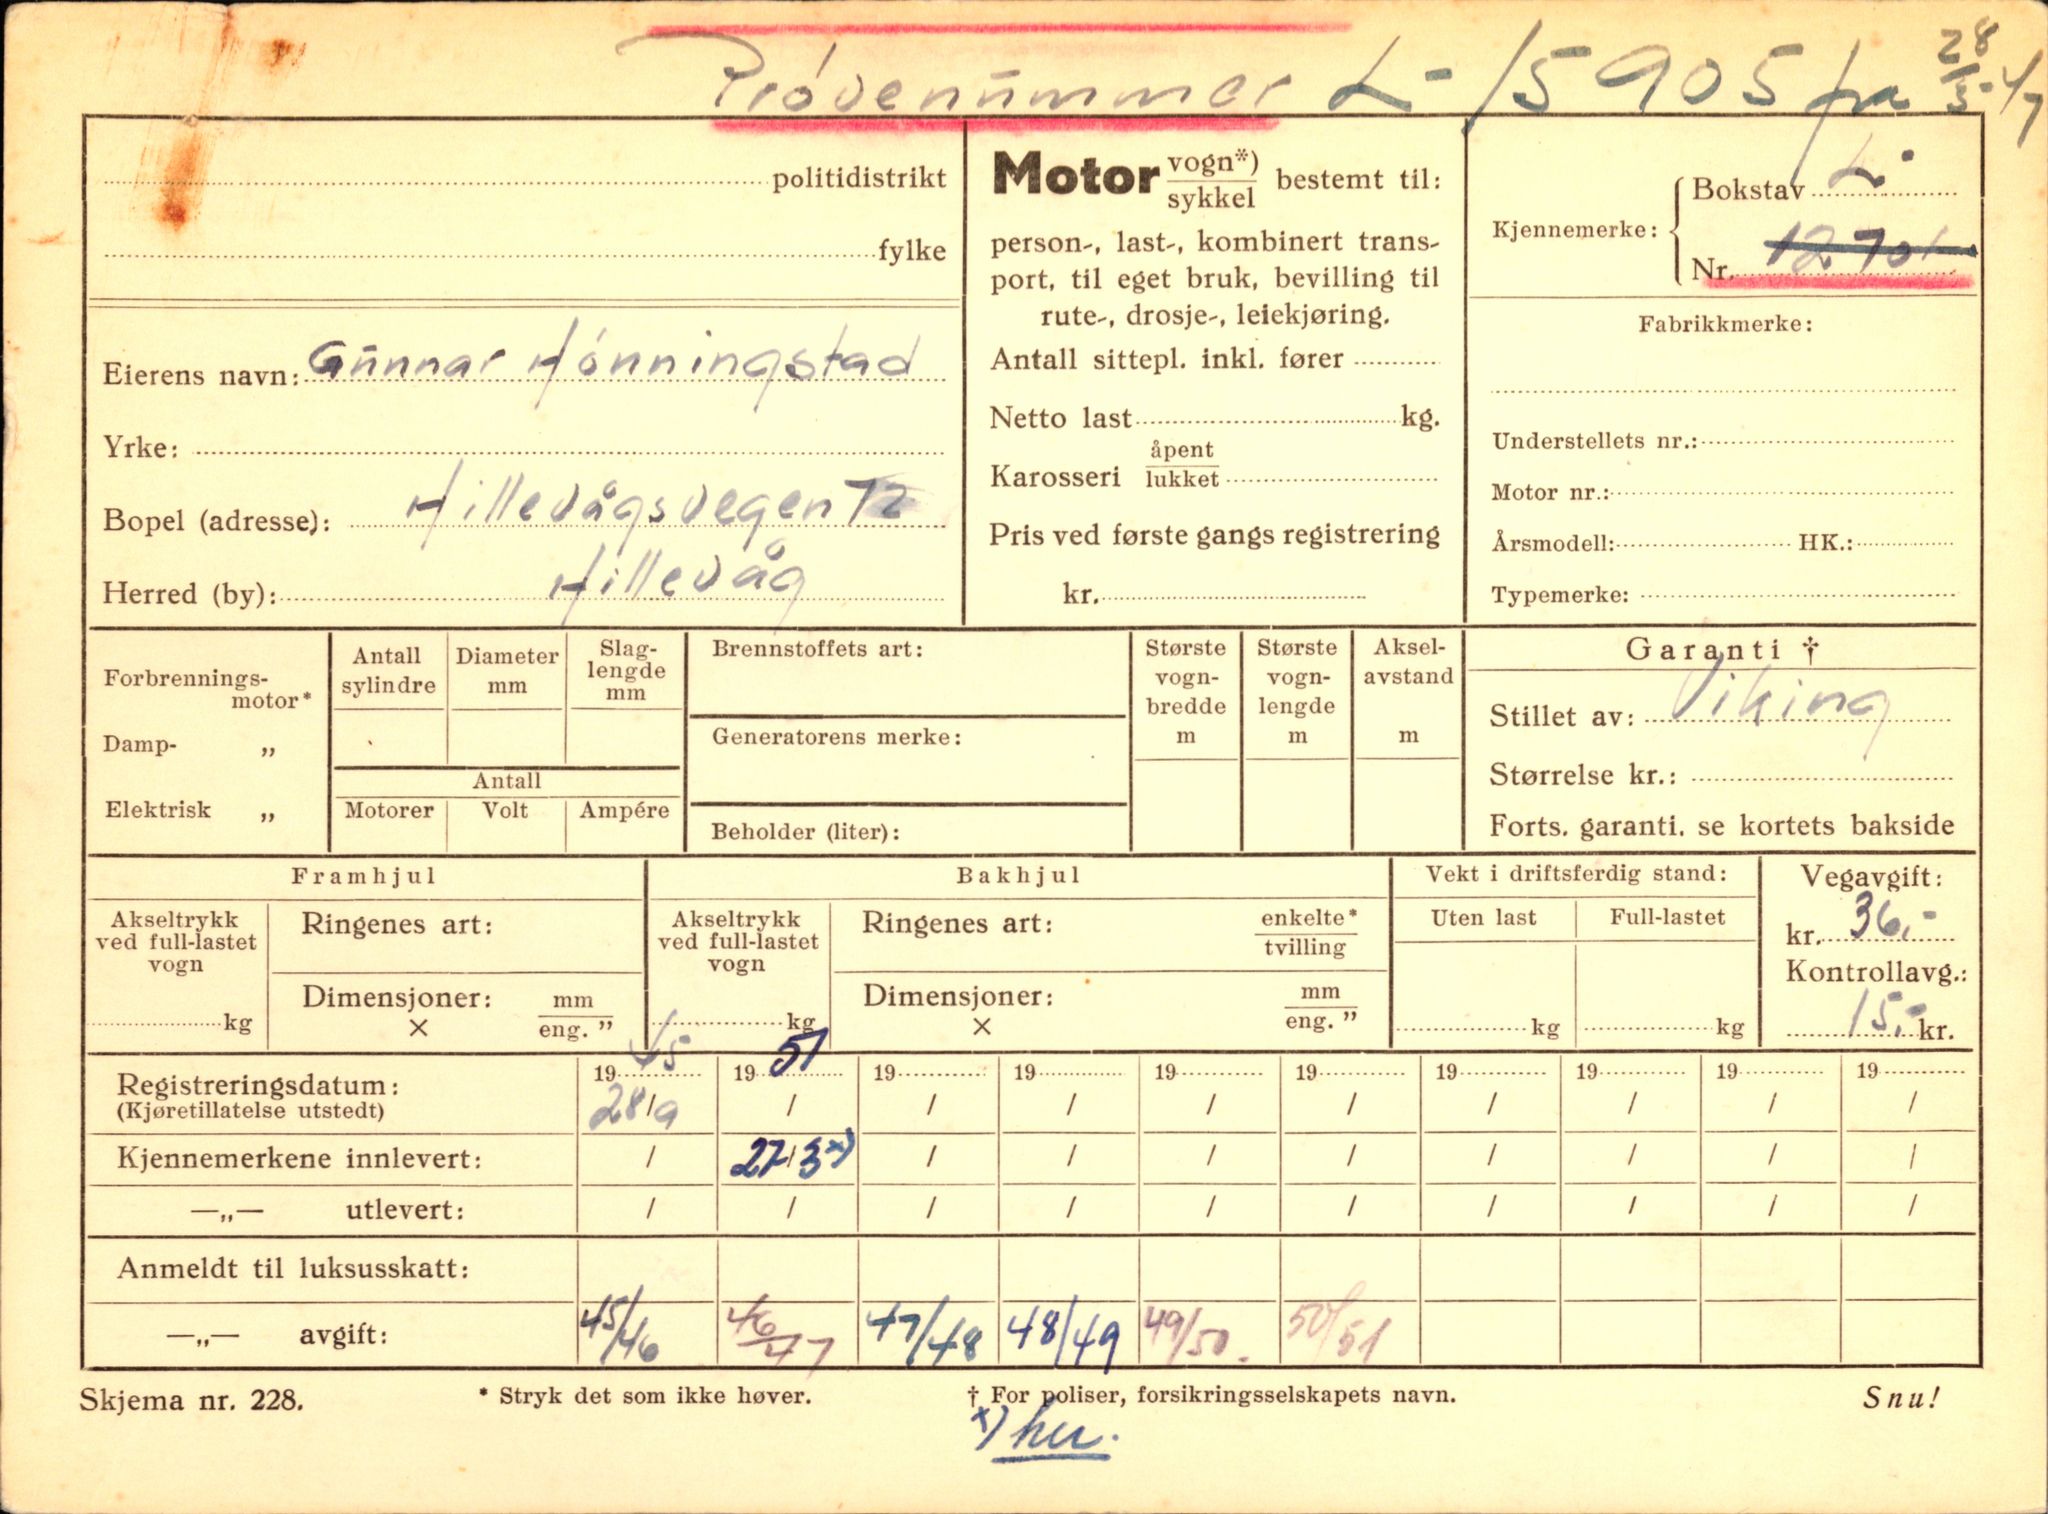 Prövenummer L-15905 fra 28/5-
politidistrikt
fylke
Eierens navn: Gunnar Hönningstad
Yrke:
Bopel (adresse): Hillevågsvegen 72
Herred (by): Hillevåg
Motor vogn*) / sykkel bestemt til:
person-, last-, kombinert trans-
port, til eget bruk, bevilling til
rute-, drosje-, leiekjøring.
Antall sittepl. inkl. fører
Netto last kg.
Karosseri åpent / lukket
Pris ved første gangs registrering
kr.
Kjennemerke:
Bokstav L-
Nr. 12701
Fabrikkmerke:
Understellets nr.:
Motor nr.:
Årsmodell: HK.:
Typemerke:
Forbrennings-
motor*
Damp- „
Elektrisk „
Antall
sylindre
Diameter
mm
Slag-
lengde
mm
Antall
Motorer Volt Ampére
Brennstoffets art:
Generatorens merke:
Beholder (liter):
Største
vogn-
bredde
m
Største
vogn-
lengde
m
Aksel-
avstand
m
Garanti †
Stillet av: Viking
Størrelse kr.:
Forts. garanti. se kortets bakside
Framhjul
Akseltrykk
ved full-lastet
vogn
kg
Ringenes art:
Dimensjoner: mm / eng. "
×
Bakhjul
Akseltrykk
ved full-lastet
vogn
kg
Ringenes art: enkelte* / tvilling
Dimensjoner: mm / eng. "
×
Vekt i driftsferdig stand:
Uten last Full-lastet
kg kg
Vegavgift:
kr. 36,-
Kontrollavg.:
15,- kr.
19 45 19 51 19 19 19 19 19 19 19 19
Registreringsdatum: 28/9 / / / / / / / / /
(Kjøretillatelse utstedt)
Kjennemerkene innlevert: / 27/3 x) / / / / / / / /
—„— utlevert: / / / / / / / / / /
Anmeldt til luksusskatt:
—„— avgift: 45/46 46/47 47/48 48/49 49/50. 50/51
Skjema nr. 228. * Stryk det som ikke høver. † For poliser, forsikringsselskapets navn. Snu!
x) her.